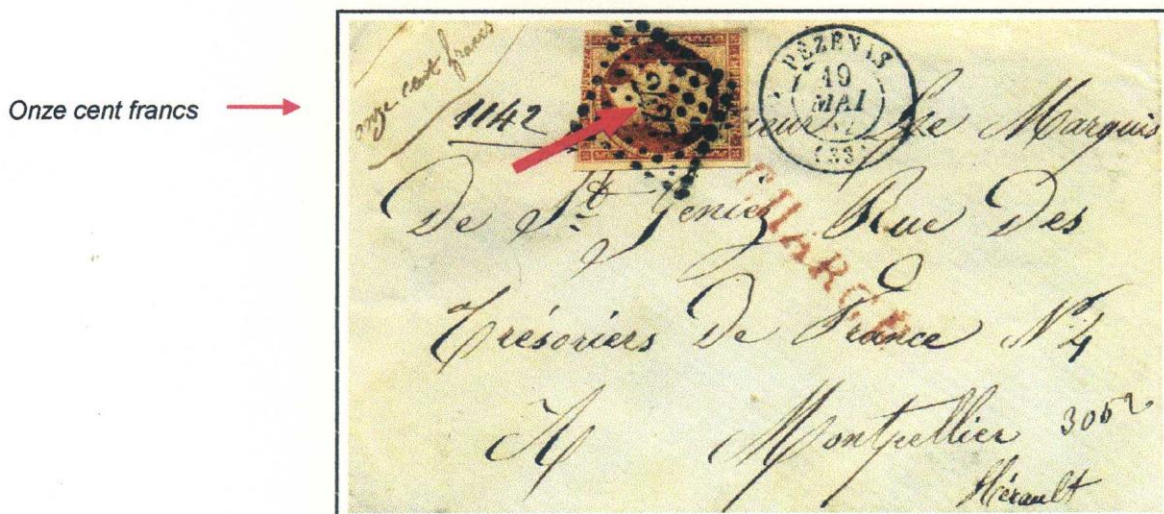 Onze cent francs
onze cent francs
1142
PÉZÉNAS
19
MAI
(33)
Le Marquis
CHARGÉ
De St. Geniez Rue Des
Trésoriers De France N° 4
A Montpellier
3052
Hérault